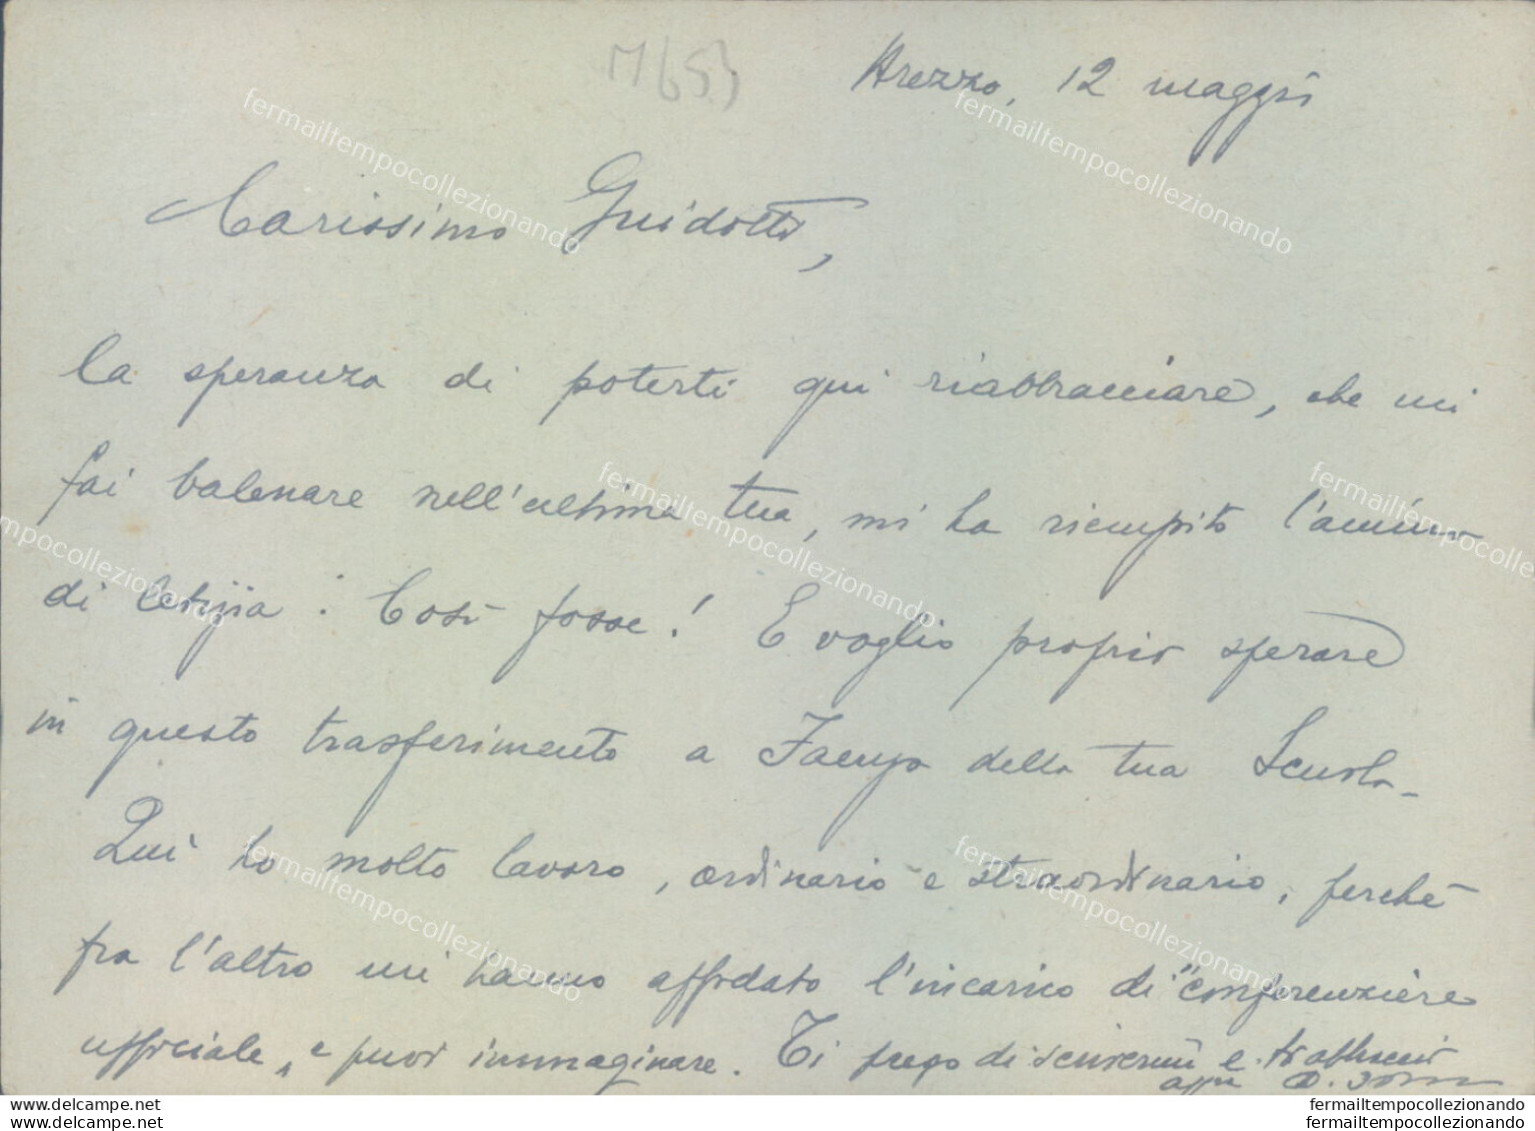 M653
Arezzo, 12 maggio
Carissimo Guidotti,
la speranza di poterti qui riabbracciare, che mi
fai balenare nell'ultima tua, mi ha riempito l'animo
di letizia : Così fosse! E voglio proprio sperare
in questo trasferimento a Faenza della tua Scuola -
Qui ho molto lavoro, ordinario e straordinario, perché
fra l'altro mi hanno affidato l'incarico di "conferenziere
ufficiale" e puoi immaginare. Ti prego di scrivermi e
fermailtempocollezionando
fermailtempocollezionando
fermailtempocollezionando
fermailtempocollezionando
fermailtempocollezionando
fermailtempocollezionando
fermailtempocollezionando
fermailtempocollezionando
fermailtempocollezionando
fermailtempocollezionando
fermailtempocollezionando